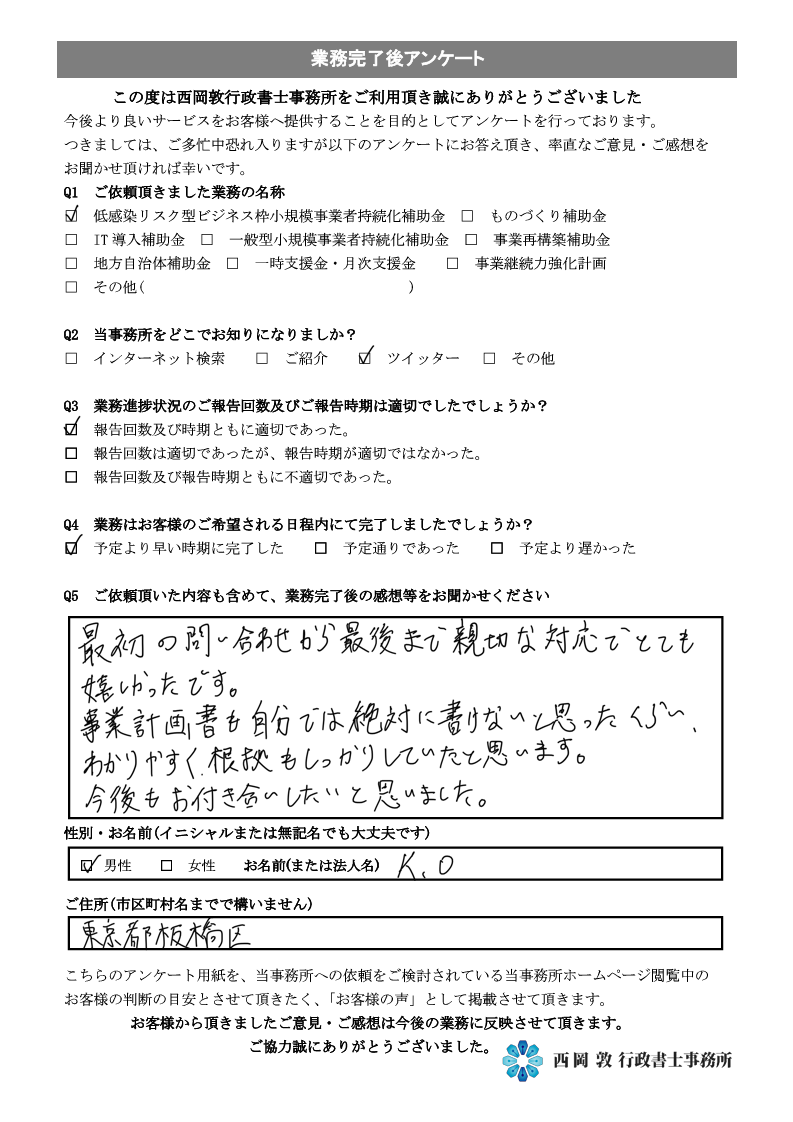 業務完了後アンケート
この度は西岡敦行政書士事務所をご利用頂き誠にありがとうございました
今後より良いサービスをお客様へ提供することを目的としてアンケートを行っております。
つきましては、ご多忙中恐れ入りますが以下のアンケートにお答え頂き、率直なご意見・ご感想を
お聞かせ頂ければ幸いです。
Q1 ご依頼頂きました業務の名称
☑ 低感染リスク型ビジネス枠小規模事業者持続化補助金 □ ものづくり補助金
□ IT導入補助金 □ 一般型小規模事業者持続化補助金 □ 事業再構築補助金
□ 地方自治体補助金 □ 一時支援金・月次支援金 □ 事業継続力強化計画
□ その他( )
Q2 当事務所をどこでお知りになりましか？
□ インターネット検索 □ ご紹介 ☑ ツイッター □ その他
Q3 業務進捗状況のご報告回数及びご報告時期は適切でしたでしょうか？
☑ 報告回数及び時期ともに適切であった。
□ 報告回数は適切であったが、報告時期が適切ではなかった。
□ 報告回数及び報告時期ともに不適切であった。
Q4 業務はお客様のご希望される日程内にて完了しましたでしょうか？
☑ 予定より早い時期に完了した □ 予定通りであった □ 予定より遅かった
Q5 ご依頼頂いた内容も含めて、業務完了後の感想等をお聞かせください
最初の問い合わせから最後まで親切な対応でとても
嬉しかったです。
事業計画書も自分では絶対に書けないと思ったくらい、
わかりやすく、根拠もしっかりしていたと思います。
今後もお付き合いしたいと思いました。
性別・お名前(イニシャルまたは無記名でも大丈夫です)
☑ 男性 □ 女性 お名前(または法人名) K.O
ご住所(市区町村名までで構いません)
東京都板橋区
こちらのアンケート用紙を、当事務所への依頼をご検討されている当事務所ホームページ閲覧中の
お客様の判断の目安とさせて頂きたく、「お客様の声」として掲載させて頂きます。
お客様から頂きましたご意見・ご感想は今後の業務に反映させて頂きます。
ご協力誠にありがとうございました。
西岡 敦 行政書士事務所